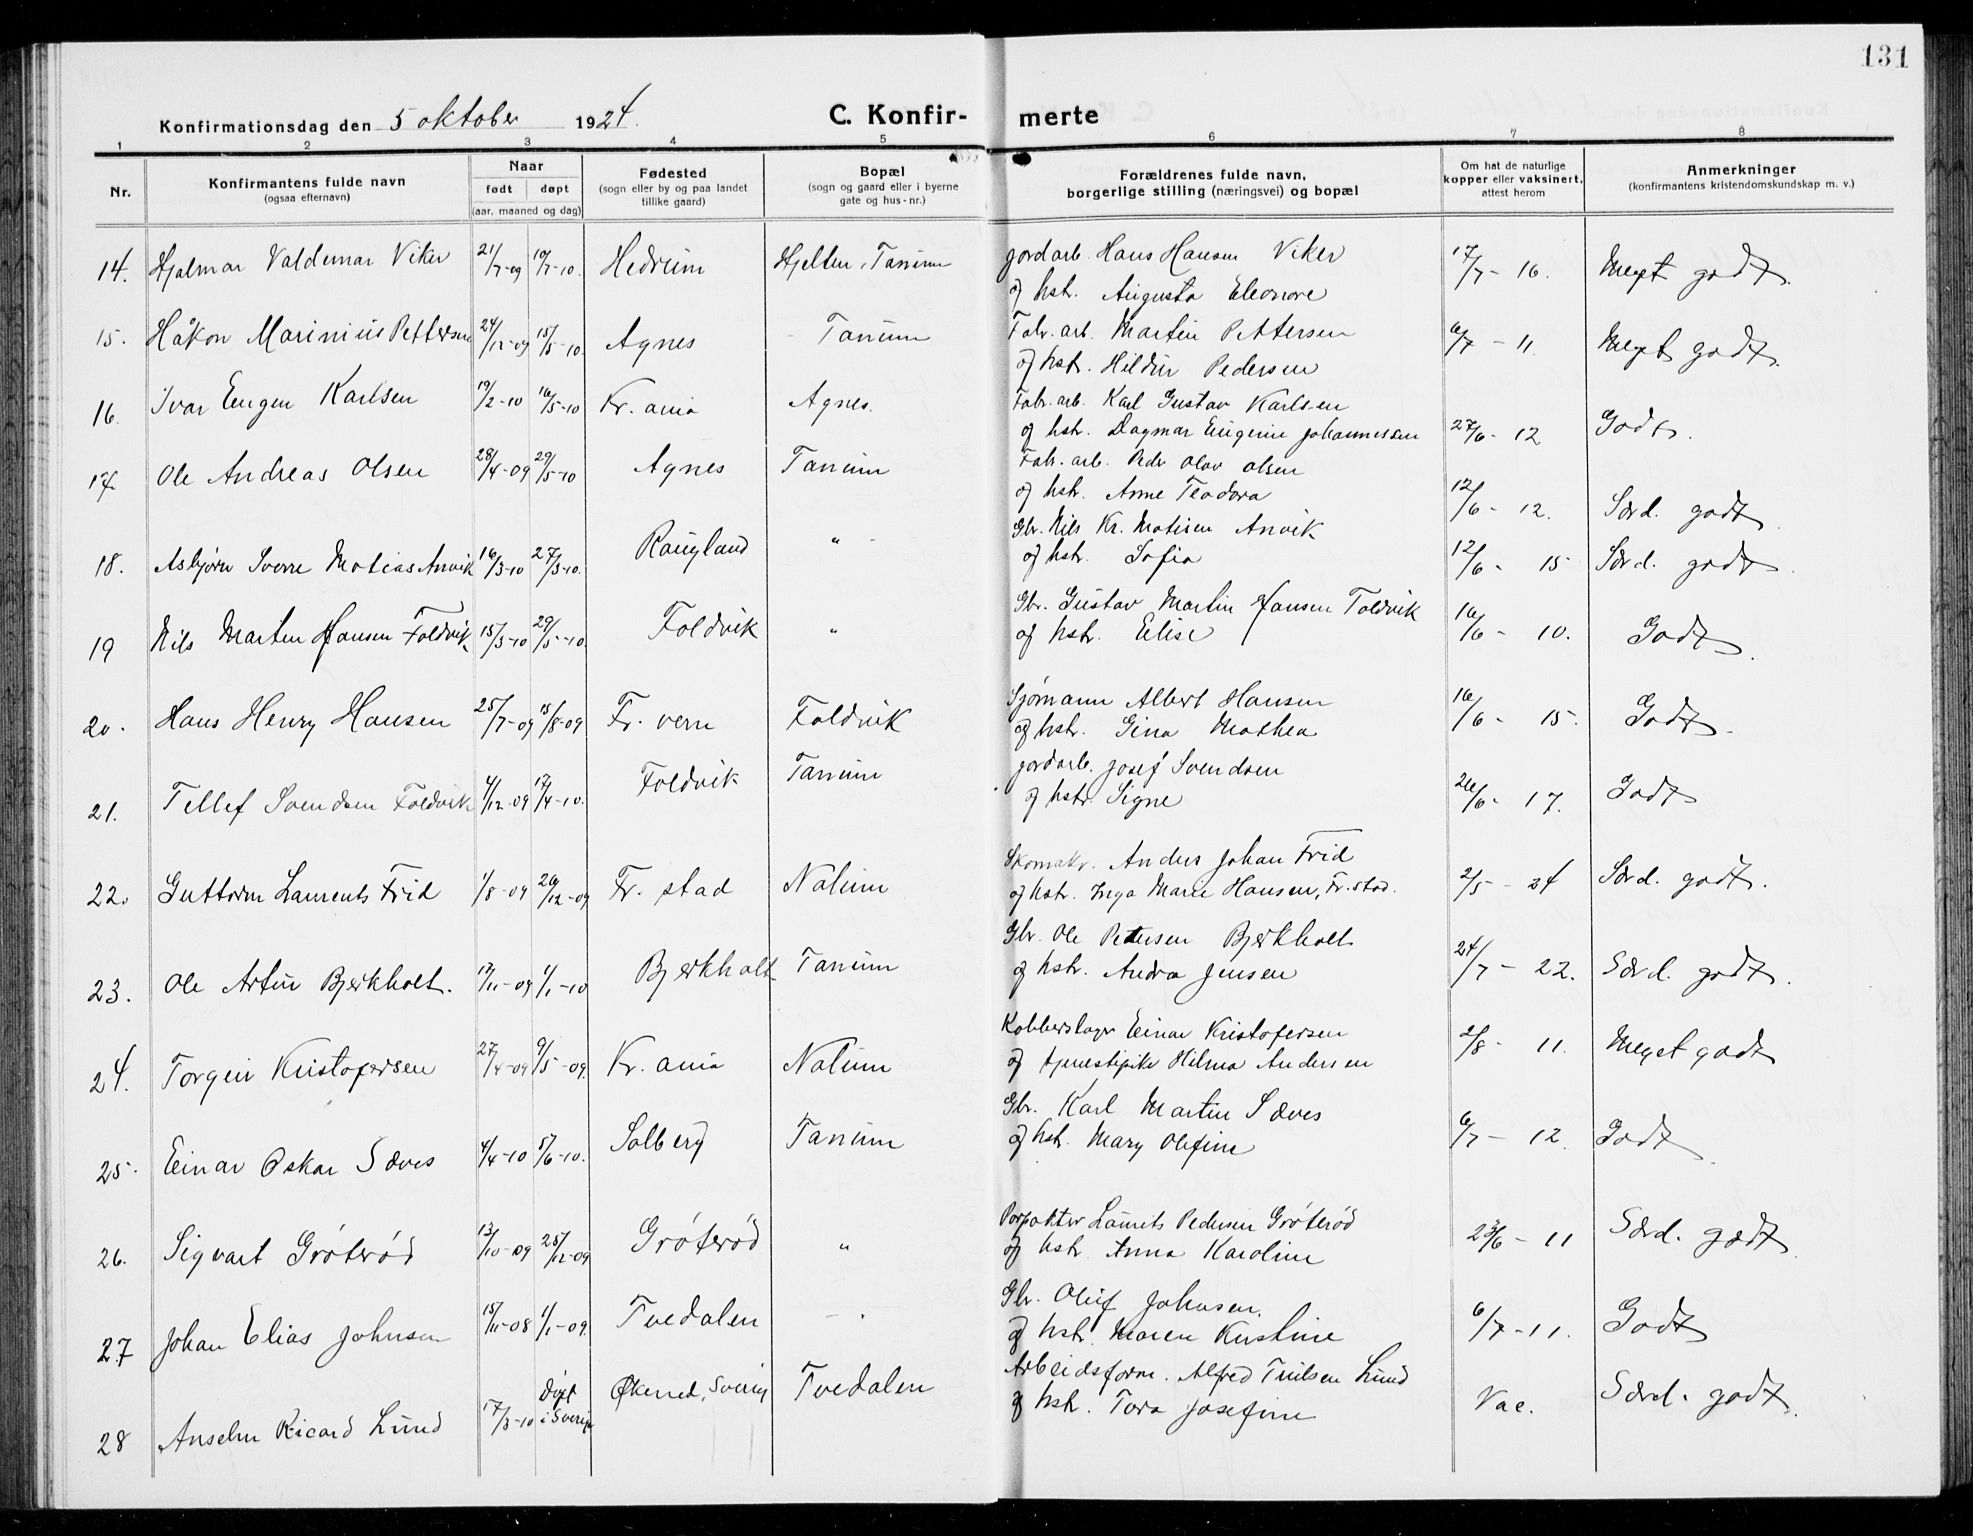 131
Konfirmationsdag den 5 oktober 1924. C. Konfir- merte
1 2 3 4 5 6 7 8
Nr. Konfirmantens fulde navn (ogsaa efternavn) Naar født døpt (aar, maaned og dag) Fødested (sogn eller by og paa landet tillike gaard) Bopæl (sogn og gaard eller i byerne gate og hus-nr.) Forældrenes fulde navn, borgerlige stilling (næringsvei) og bopæl Om hat de naturlige kopper eller vaksinert, attest herom Anmerkninger (konfirmantens kristendomskundskap m. v.)
14. Hjalmar Valdemar Viker 21/7-09 10/7-10. Hedrum Hjelten, Tanum Jordarb. Hans Hansen Viker 17/7-16. Meget godt.
og hstr. Augusta Eleonore
15. Håkon Marinius Pettersen 24/12-09 15/5-10. Agnes Tanum Fabr. arb. Martin Pettersen 6/7-11 Meget godt.
og hstr. Hildur Pedersen
16. Ivar Eugen Karlsen 19/2-10 16/5-10 Kr. ania Agnes. Fabr. arb. Karl Gustav Karlsen
og hstr. Dagmar Eugenie Johannessen 27/6-12 Godt.
17. Ole Andreas Olsen 28/4-09 29/5-10 Agnes Tanum Fabr. arb. Peder Olav Olsen
og hstr. Anne Teodora 12/6-12. Særd. godt
18. Asbjørn Sverre Matias Anvik 16/3-10 27/3-10. Raugland " Gbr. Nils Kr. Matisen Anvik
og hstr. Sofia 12/6-15 Særd. godt.
19 Nils Martin Hansen Foldvik 15/3-10 29/5-10. Foldvik " Gbr. Gustav Martin Hansen Foldvik
og hstr. Elise 16/6-10. Godt.
20. Hans Henry Hansen 25/7-09 15/8-09 Fr. vern Foldvik Sjømann Albert Hansen 16/6-15. Godt.
og hstr. Gina Mathea
21. Tellef Svendsen Foldvik 4/12-09 17/4-10. Foldvik Tanum Jordarb. Josef Svendsen
og hstr. Signe 26/6-17. Godt
22. Guttorm Laurents Frid 1/8-09 26/12-09 Fr. stad Nalum Skomakr. Anders Johan Frid 2/5-24 Særd. godt.
og hstr. Inga Marie Hansen, Fr. stad.
23. Ole Artur Bjerkholt. 17/11-09 1/1-10 Bjerkholt Tanum Gbr. Ole Petersen Bjerkholt 24/7-22. Særd. godt.
og hstr. Andra Jensen
24. Torgeir Kristofersen 27/4-09 9/5-09. Kr. ania Nalum Kobberslager Einar Kristofersen 2/8-11. Meget godt
og tjenestepike Hilma Andersen
25. Einar Oskar Sæves 4/4-10 5/6-10. Solberg Tanum Gbr. Karl Martin Sæves
og hstr. Mary Olefine 6/7-12. Godt.
26. Sigvart Grøterød 13/10-09 25/12-09 Grøterød " Forpakter Laurits Pedersen Grøterød 23/6-11 Særd. godt.
og hstr. Anna Karoline
27 Johan Elias Johnsen 15/11-08 1/1-09. Tvedalen Gbr. Oluf Johnsen.
og hstr. Maren Kristine 6/7-11. Godt
28 Anselm Ricard Lund 17/3-10 Døpt i Sverige Økered, Sverig Tvedalen Arbeidsform. Alfred Truilsen Lund
og hstr. Tora Josefine Vac. Særd. godt.